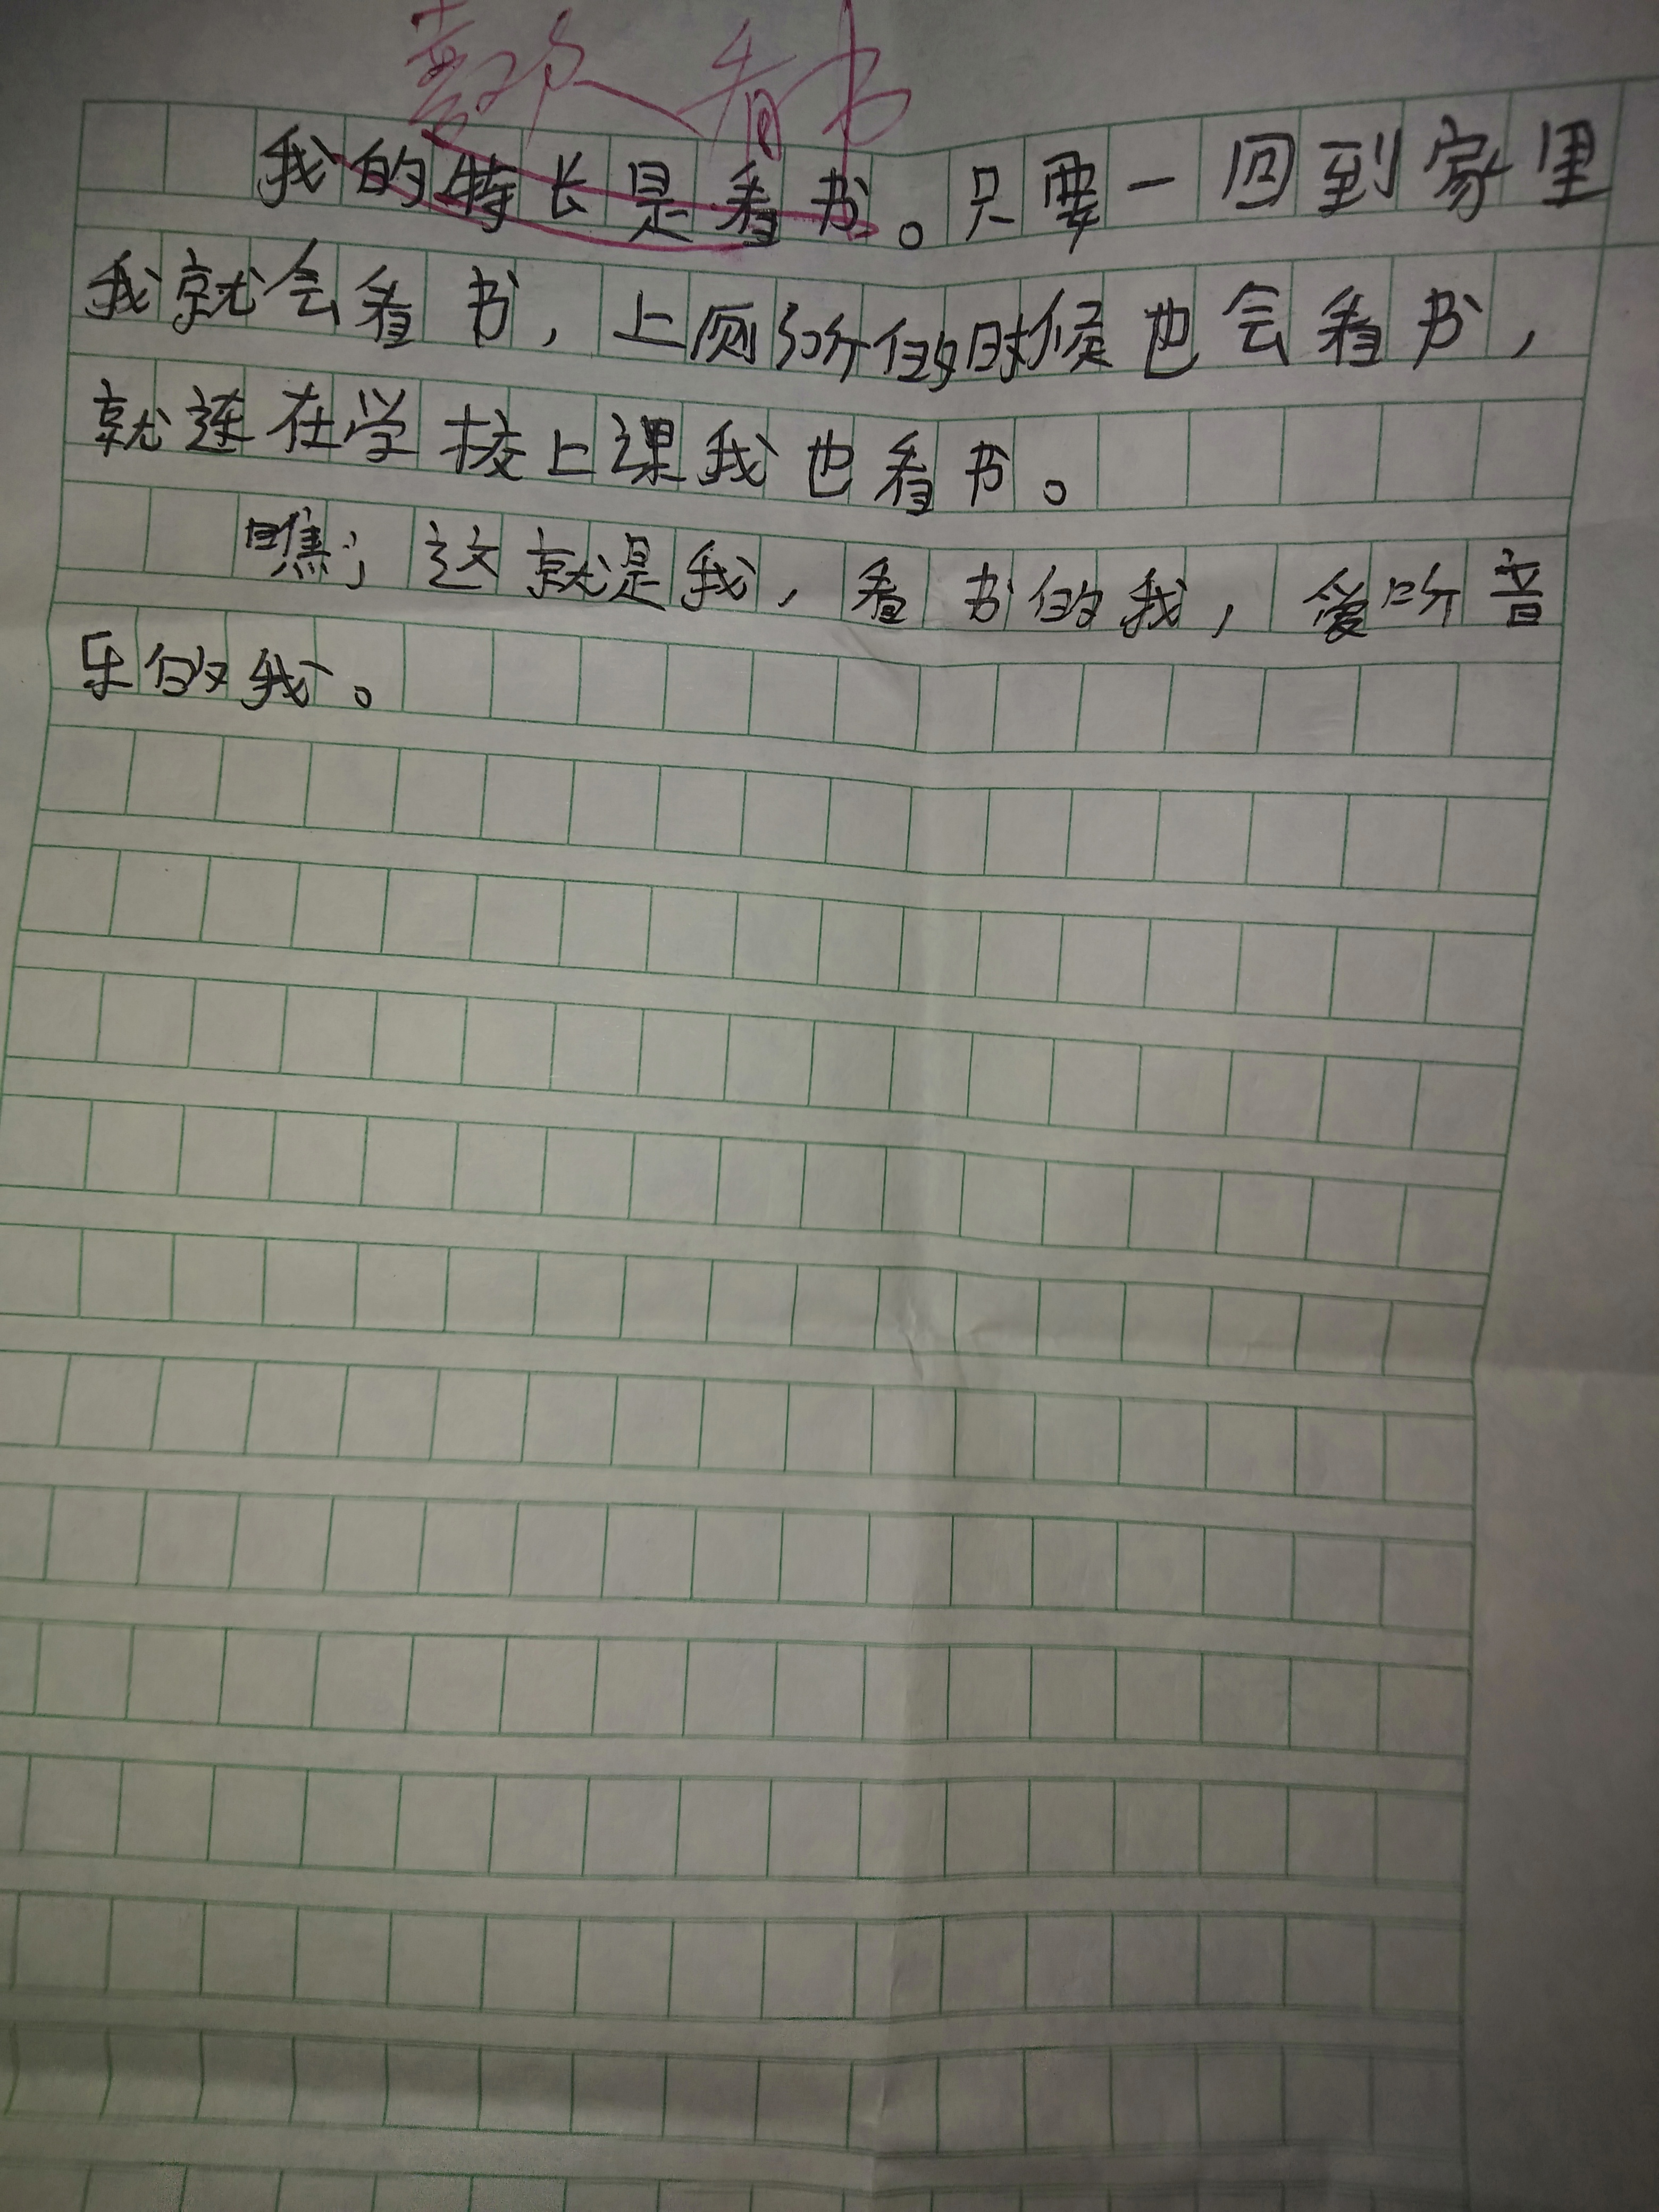 喜欢看书
我的特长是看书。只要一回到家里
我就会看书，上厕所的时候也会看书，
就连在学校上课我也看书。
瞧，这就是我，看书的我，爱听音
乐的我。